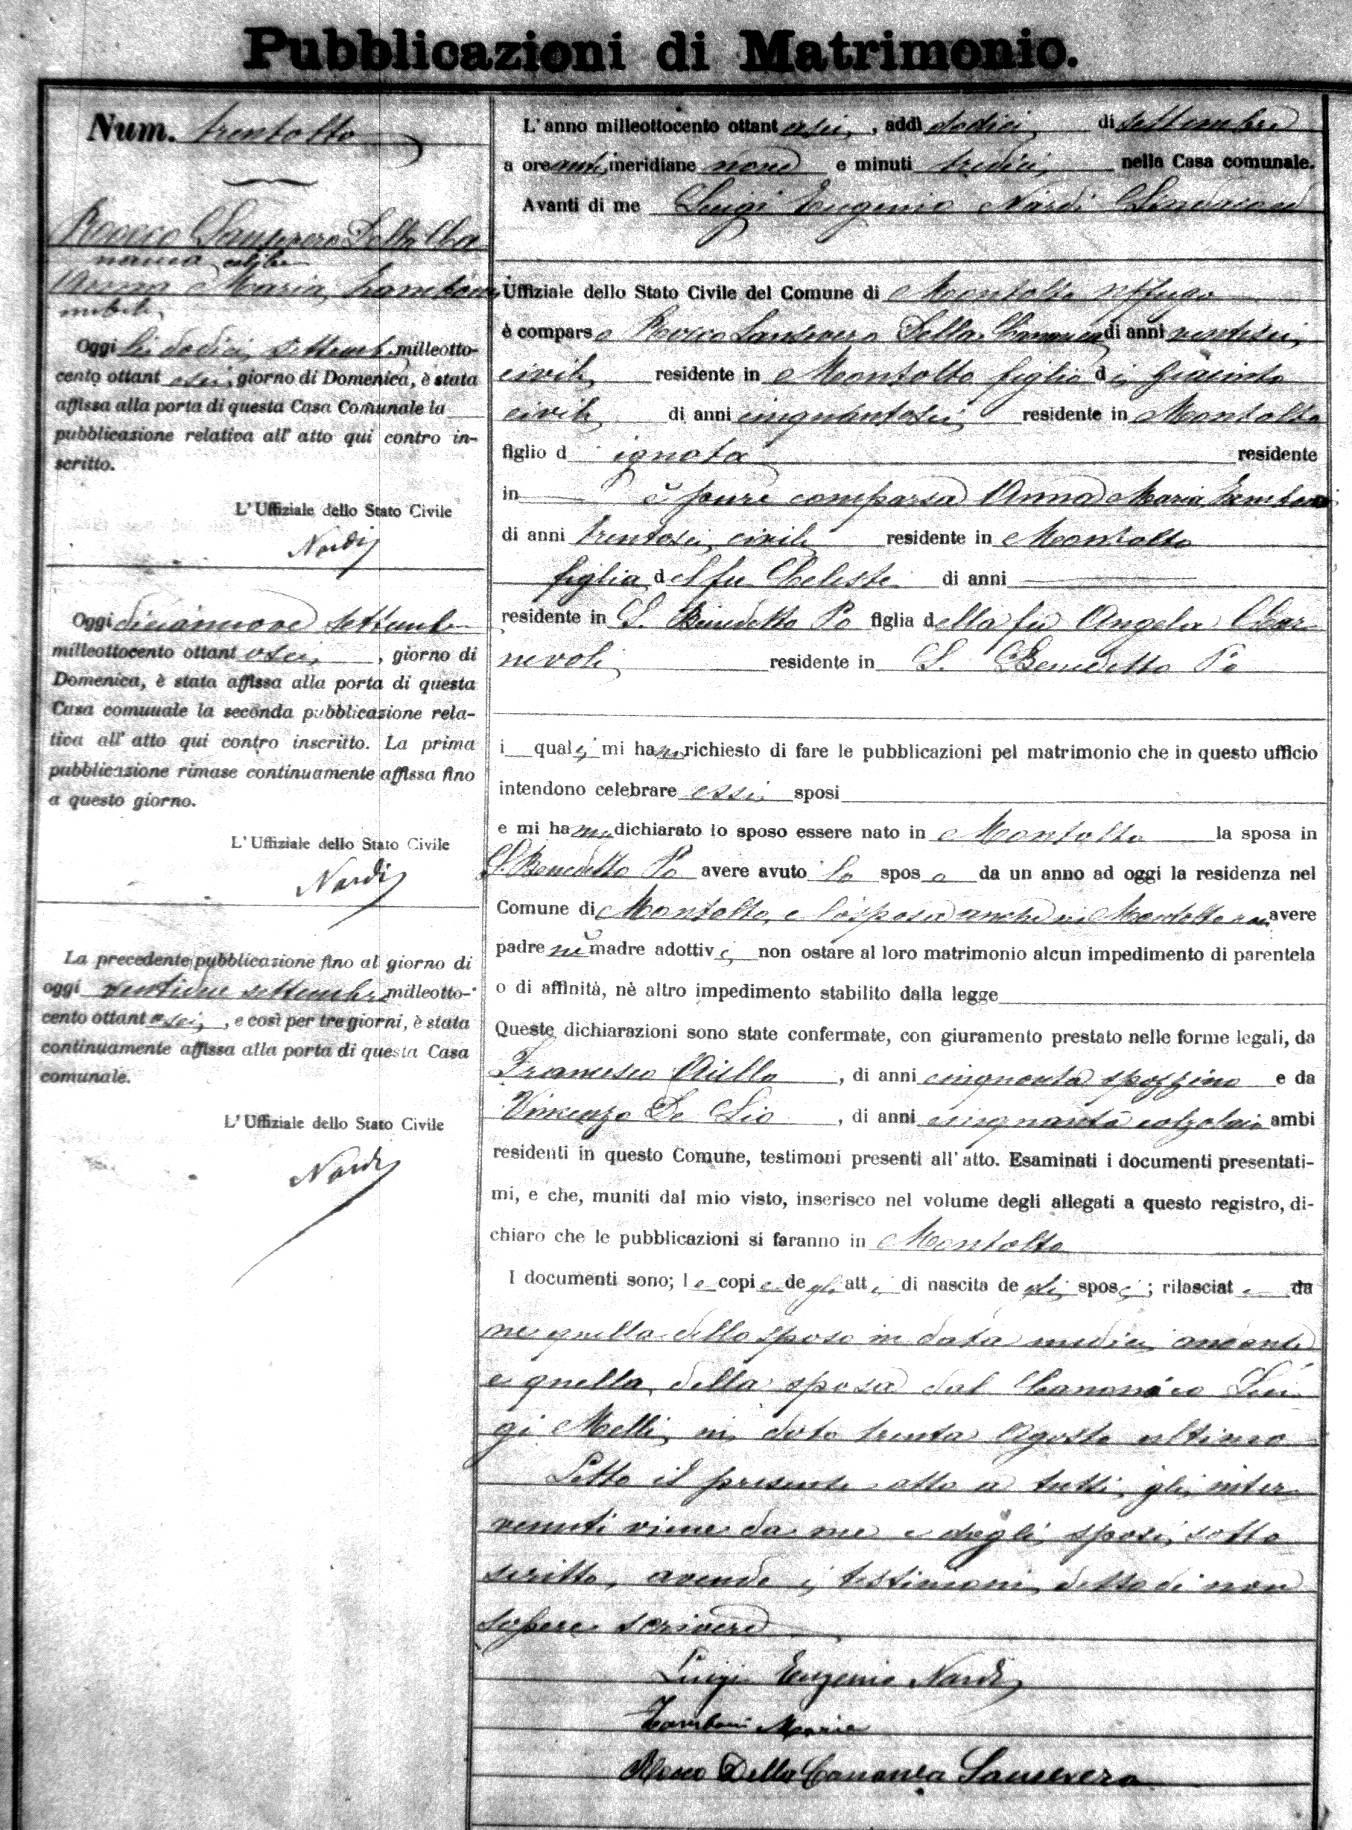 Pubblicazioni di Matrimonio.
Num. trentotto
Rocco Sansevero Della Ca
nonea celibe
Anna Maria Zamboni
nubile
Oggi li dodici settembre milleotto-
cento ottantasei, giorno di Domenica, è stata
affissa alla porta di questa Casa Comunale la
pubblicazione relativa all' atto qui contro in-
scritto.
L' Uffiziale dello Stato Civile
Nardi
Oggi diciannove settembre
milleottocento ottantasei, giorno di
Domenica, è stata affissa alla porta di questa
Casa comunale la seconda pubblicazione rela-
tiva all' atto qui contro inscritto. La prima
pubblicazione rimase continuamente affissa fino
a questo giorno.
L' Uffiziale dello Stato Civile
Nardi
La precedente pubblicazione fino al giorno di
oggi settembre milleotto-
cento ottantasei, e così per tre giorni, è stata
continuamente affissa alla porta di questa Casa
comunale.
L' Uffiziale dello Stato Civile
Nardi
L' anno milleottocento ottantasei, addì dodici di settembre
a ore antimeridiane nove e minuti tredici nella Casa comunale.
Avanti di me Luigi Eugenio Nardi Sindaco
Uffiziale dello Stato Civile del Comune di Montalto Uffugo
è comparso Rocco Sansevero Della Cananea di anni ventisei
civile residente in Montalto figlio di Giacinto
civile di anni cinquantasei residente in Montalto
figlio d ignota residente
in è pure comparsa Anna Maria Zamboni
di anni trentasei civile residente in Montalto
figlia del fu Celeste di anni
residente in S. Benedetto Po figlia della fu Angela Car
nevoli residente in S. Benedetto Po
i quali mi hanno richiesto di fare le pubblicazioni pel matrimonio che in questo ufficio
intendono celebrare essi sposi
e mi hanno dichiarato lo sposo essere nato in Montalto la sposa in
S. Benedetto Po avere avuto lo sposo da un anno ad oggi la residenza nel
Comune di Montalto, e la sposa anche in Montalto non avere
padre nè madre adottivi non ostare al loro matrimonio alcun impedimento di parentela
o di affinità, nè altro impedimento stabilito dalla legge
Queste dichiarazioni sono state confermate, con giuramento prestato nelle forme legali, da
Francesco Aiello, di anni cinquanta spazzino e da
Vincenzo De Lio, di anni cinquanta calzolaio ambi
residenti in questo Comune, testimoni presenti all' atto. Esaminati i documenti presentati-
mi, e che, muniti dal mio visto, inserisco nel volume degli allegati a questo registro, di-
chiaro che le pubblicazioni si faranno in Montalto
I documenti sono; le copie degli atti di nascita degli sposi; rilasciate da
me quella dello sposo in data undici andante
e quella della sposa dal Canonico Lui
gi Melli, in data trenta Agosto ultimo
Letto il presente atto a tutti gli inter
venuti viene da me e dagli sposi sotto
scritto, avendo i testimoni detto di non
sapere scrivere
Luigi Eugenio Nardi
Zamboni Maria
Rocco Della Cananea Sansevero